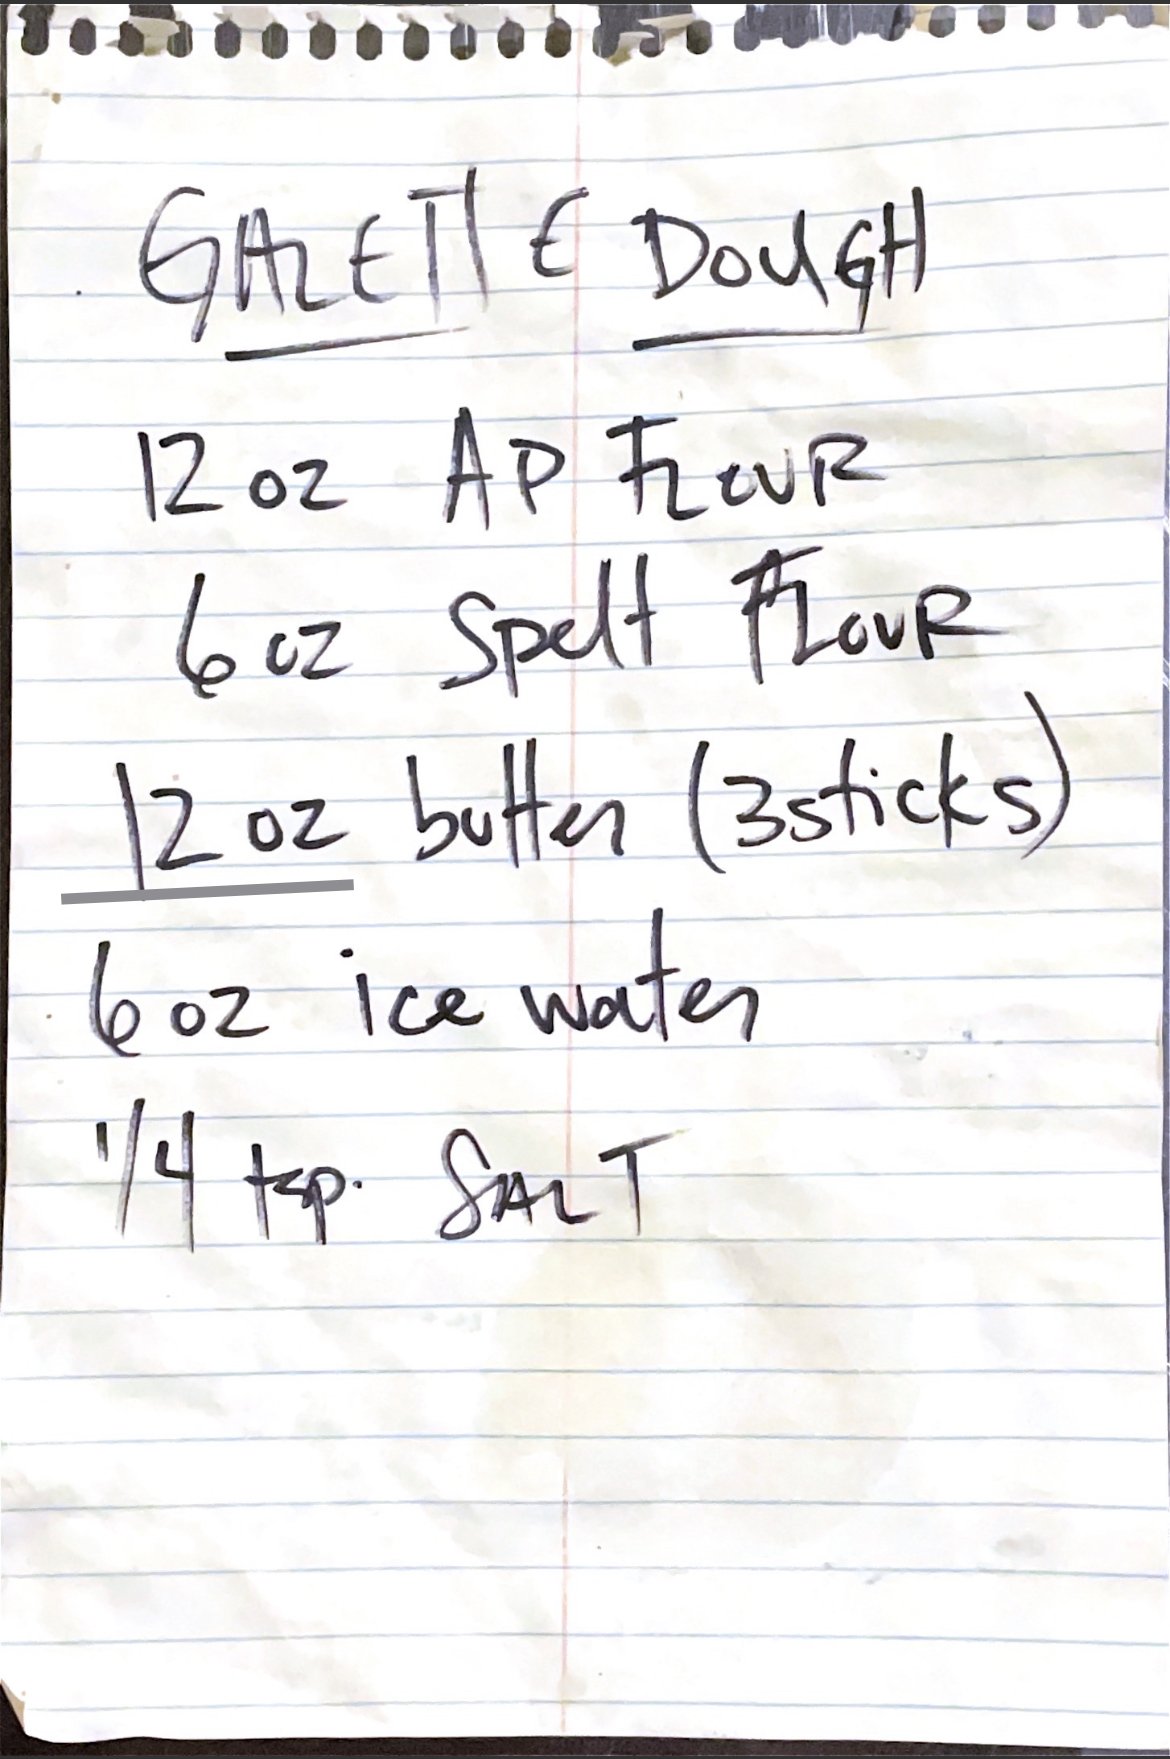 GALETTE DOUGH
12 oz AP FLOUR
6 oz Spelt FLOUR
12 oz butter (3 sticks)
6 oz ice water
1/4 tsp. SALT